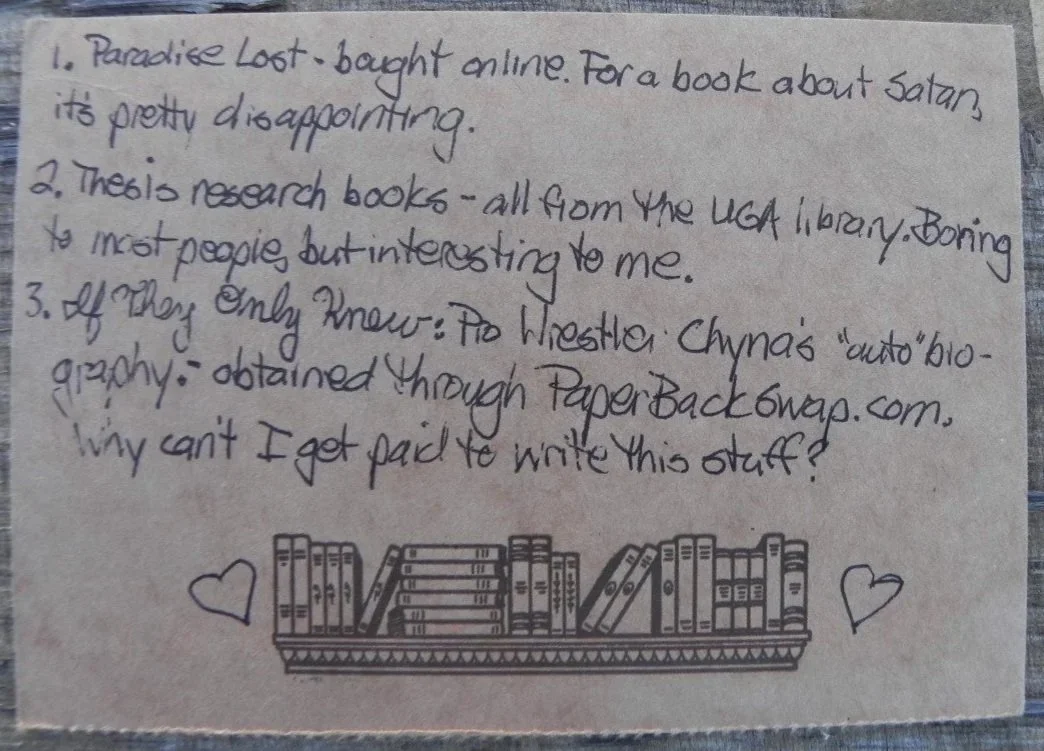 1. Paradise Lost - bought online. For a book about Satan,
it's pretty disappointing.
2. Thesis research books - all from the UGA library. Boring
to most people, but interesting to me.
3. If They Only Knew: Pro Wrestler Chyna's "auto"bio-
graphy. - obtained through PaperBackSwap.com.
Why can't I get paid to write this stuff?